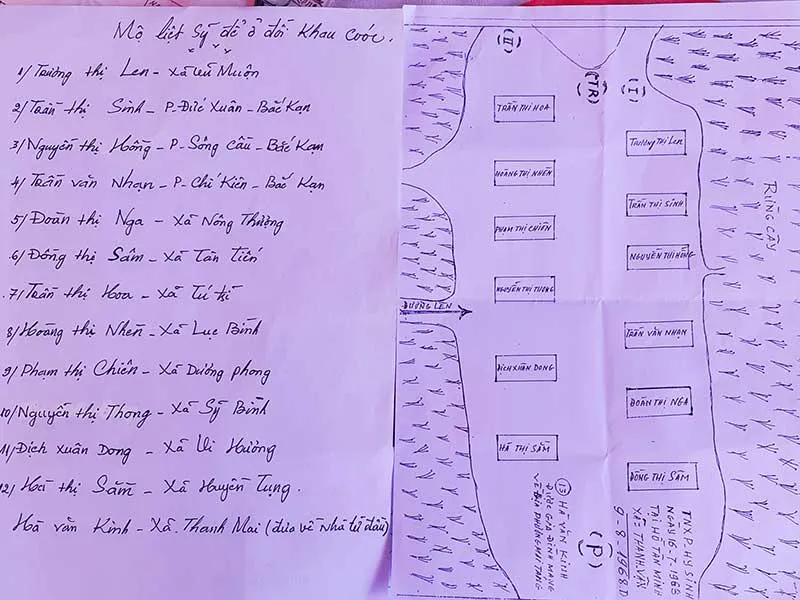 Mộ liệt sỹ để ở đồi Khau Cước.
1/ Trương thị Len - Xã Tú Muộn
2/ Trần thị Sinh - P. Đức Xuân - Bắc Kạn
3/ Nguyễn thị Hồng - P. Sông Cầu - Bắc Kạn
4/ Trần văn Nhạn - P. Chí Kiên - Bắc Kạn
5/ Đoàn thị Nga - Xã Nông Thượng
6/ Đồng thị Sâm - Xã Tân Tiến
7/ Trần thị Hoa - Xã Tú trĩ
8/ Hoàng thị Nhên - Xã Lục Bình
9/ Phạm thị Chiên - Xã Dương phong
10/ Nguyễn thị Thong - Xã Sỹ Bình
11/ Dịch Xuân Dong - Xã Vi Hương
12/ Hà thị Sâm - Xã Huyền Tụng.
Hà văn Kinh - Xã Thanh Mai (đưa về Nhà từ đầu)
(II)
(TR)
(I)
TRẦN THỊ HOA
HOÀNG THỊ NHÊN
PHẠM THỊ CHIÊN
NGUYỄN THỊ TƯỢNG
ĐƯỜNG LÊN
DỊCH XUÂN DONG
HÀ THỊ SÂM
TRƯƠNG THỊ LEN
TRẦN THỊ SINH
NGUYỄN THỊ HỒNG
TRẦN VĂN NHẠN
ĐOÀN THỊ NGA
ĐỒNG THỊ SÂM
RỪNG CÂY
(13) HÀ VĂN KINH
ĐƯỢC GIA ĐÌNH MANG
VỀ ĐỊA PHƯƠNG MAI TÁNG
(P)
TNXP HY SINH
NGÀY 16-7-1968
TẠI HỒ TÂN MINH
XÃ THANH VẬN
9-8-1968 D